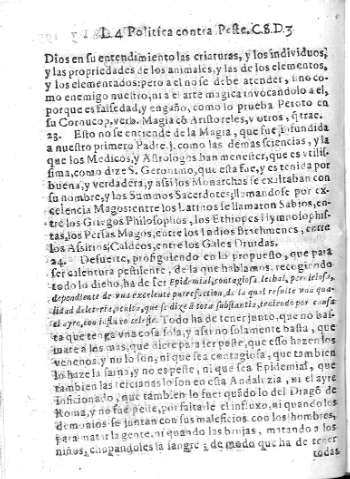 L. 4. Politica contra Peste. C. 8. D. 3
Dios en su entendimiento las criaturas, y los individuos,
y las propriedades de los animales, y las de los elementos,
y los elementados: pero a el no se debe atender, sino co-
mo enemigo nuestro, ni a el arte magica invocandolo a el,
porque es falsedad, y engaño, como lo prueba Peroto en
su Cornucop. verb. Magico Aristoteles, y otros,
23. Esto no se entiende de la Magia, que fue infundida
a nuestro primero Padre, como las demas sciencias, y la
que los Medicos, y Astrologos han menester, que es utilis-
sima, como dize S. Geronimo, que esta fue, y es tenida por
buena, y verdadera, y assi los Monarchas se exaltaban con
su nombre, y los Summos Sacerdotes, llamandose por ex-
celencia Magos: entre los Latinos se llamaron Sabios, en-
tre los Griegos Philosophos, los Ethiopes Hymnosophis-
tas, los Persas Magos, entre los Indios Brachmenes, entre
los Assirios, Caldeos, entre los Gales Druidas.
24. Desuerte, prosiguiendo en lo propuesto, que para
ser calentura pestilente, de la que hablamos, recogiendo
todo lo dicho, ha de ser Epidemial, contagiosa, letbal, perniciosa,
dependiente de una excelente putrefaccion, de la qual resulte una qua-
lidad deleteria, oculta, que se dize à tota substantia, trayendo por causa
el ayre, con influxo celeste. Todo ha de tener junto, que no bas-
ta que tenga una cosa sola, y assi no solamente basta, que
mate a los mas, que dizen para ser peste, que esso hazen los
venenos, y no lo son, ni que sea contagiosa, que tambien
lo haze la sarna, y no es peste, ni que sea Epidemias, que
tambien las tercianas lo son en esta Andaluzia, ni el ayre
inficionado, que tambien lo fue quãdo lo del Dragõ de
Roma, y no fue peste, por faltarle el influxo, ni quando los
demonios se juntan con sus maleficios con los hombres,
para matar la gente, ni quando las brujas, matando a los
niños, chupandoles la sangre; de modo que ha de tener
todas